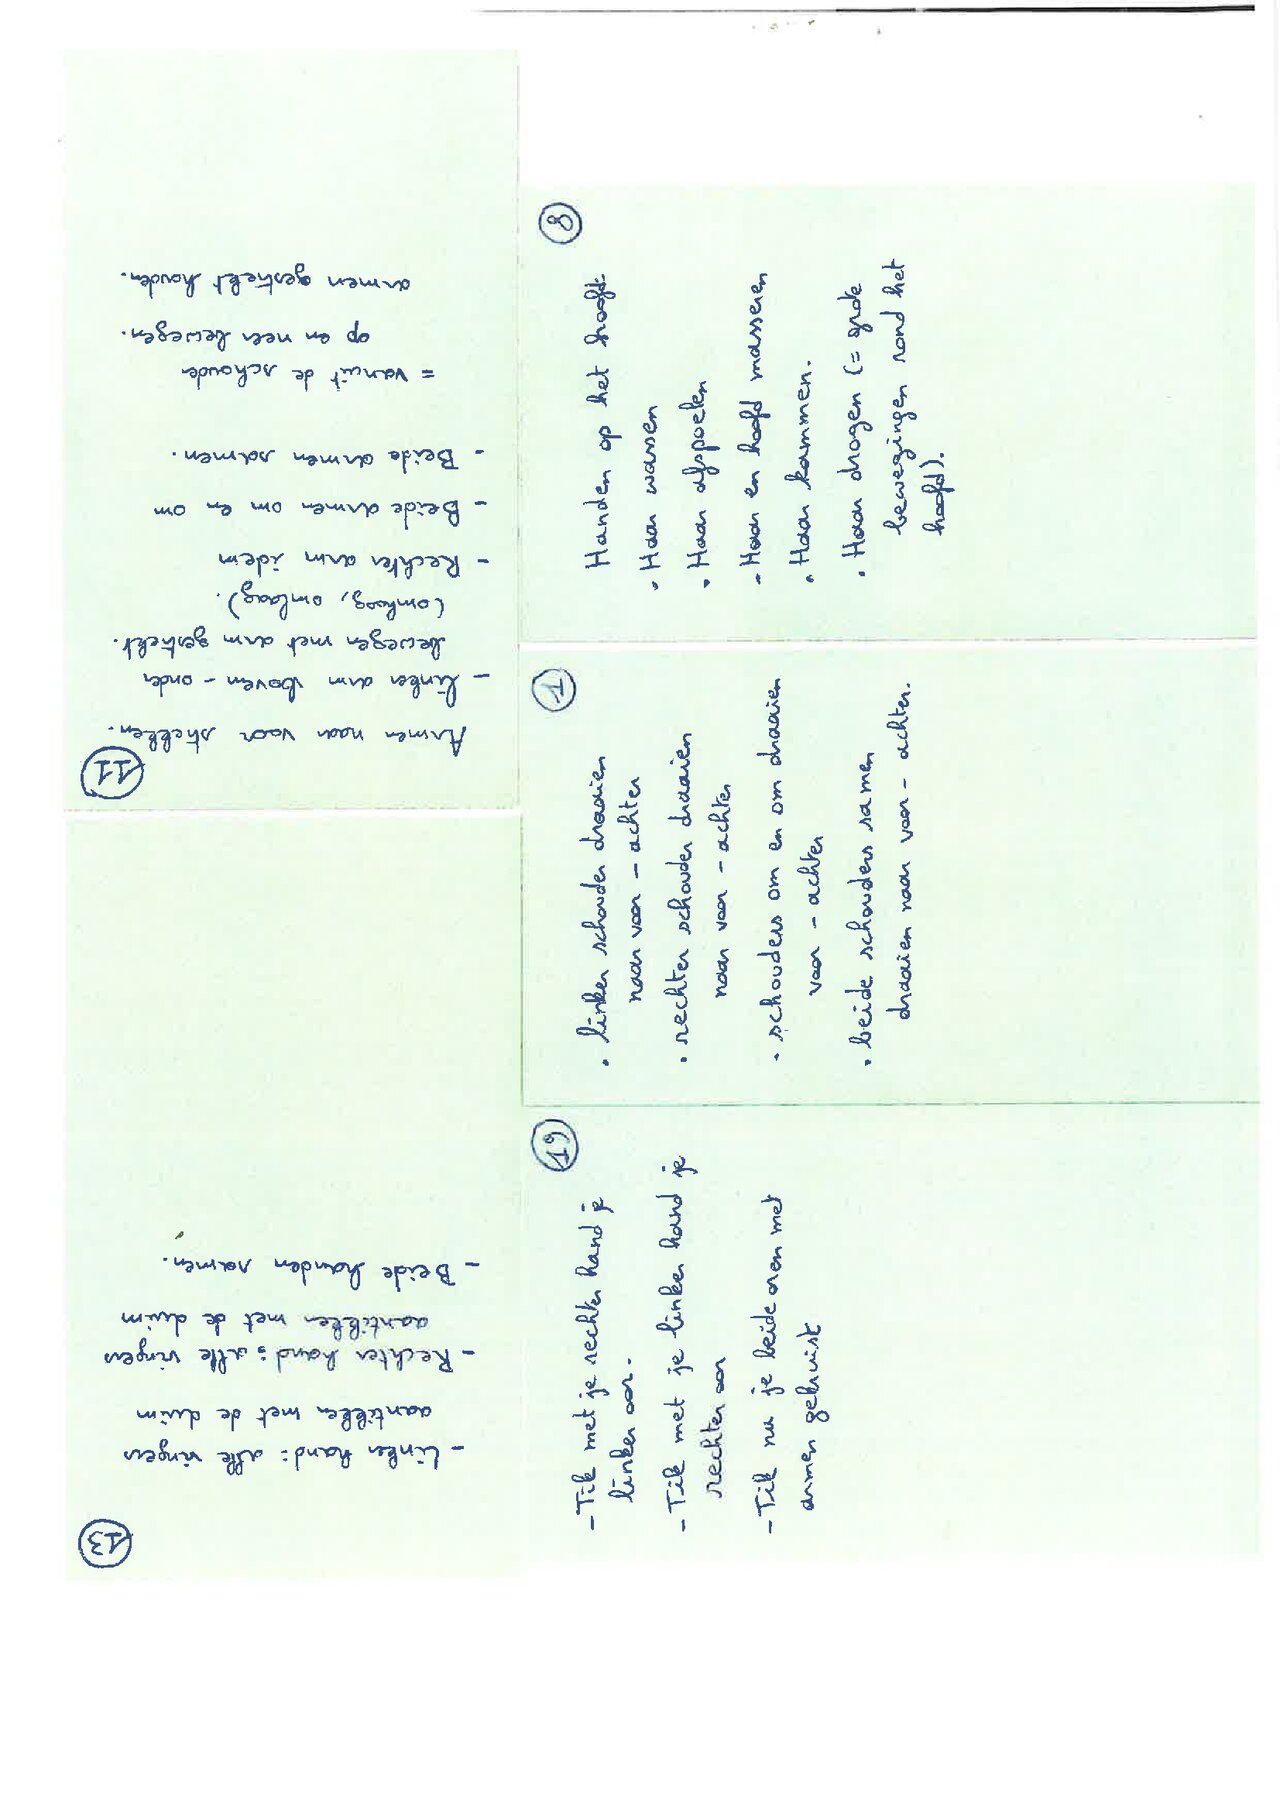 11
Armen naar voor strekken.
- Linker arm boven - onder
bewegen met arm gestrekt.
(omhoog, omlaag).
- Rechter arm idem
- Beide armen om en om
- Beide armen samen.
= vanuit de schouder
op en neer bewegen.
armen gestrekt houden.
13
- Linker hand: alle vingers
aantikken met de duim
- Rechter hand: alle vingers
aantikken met de duim
- Beide handen samen.
8
Handen op het hoofd.
• Haar wassen
• Haar afspoelen
- Haar en hoofd masseren
• Haar kammen.
• Haar drogen (= grote
bewegingen rond het
hoofd).
1
• linker schouder draaien
naar voor - achter
• rechter schouder draaien
naar voor - achter
- schouders om en om draaien
voor - achter
• beide schouders samen
draaien naar voor - achter.
19
- Tik met je rechter hand je
linker oor.
- Tik met je linker hand je
rechter oor
- Tik nu je beide oren met
armen gekruist